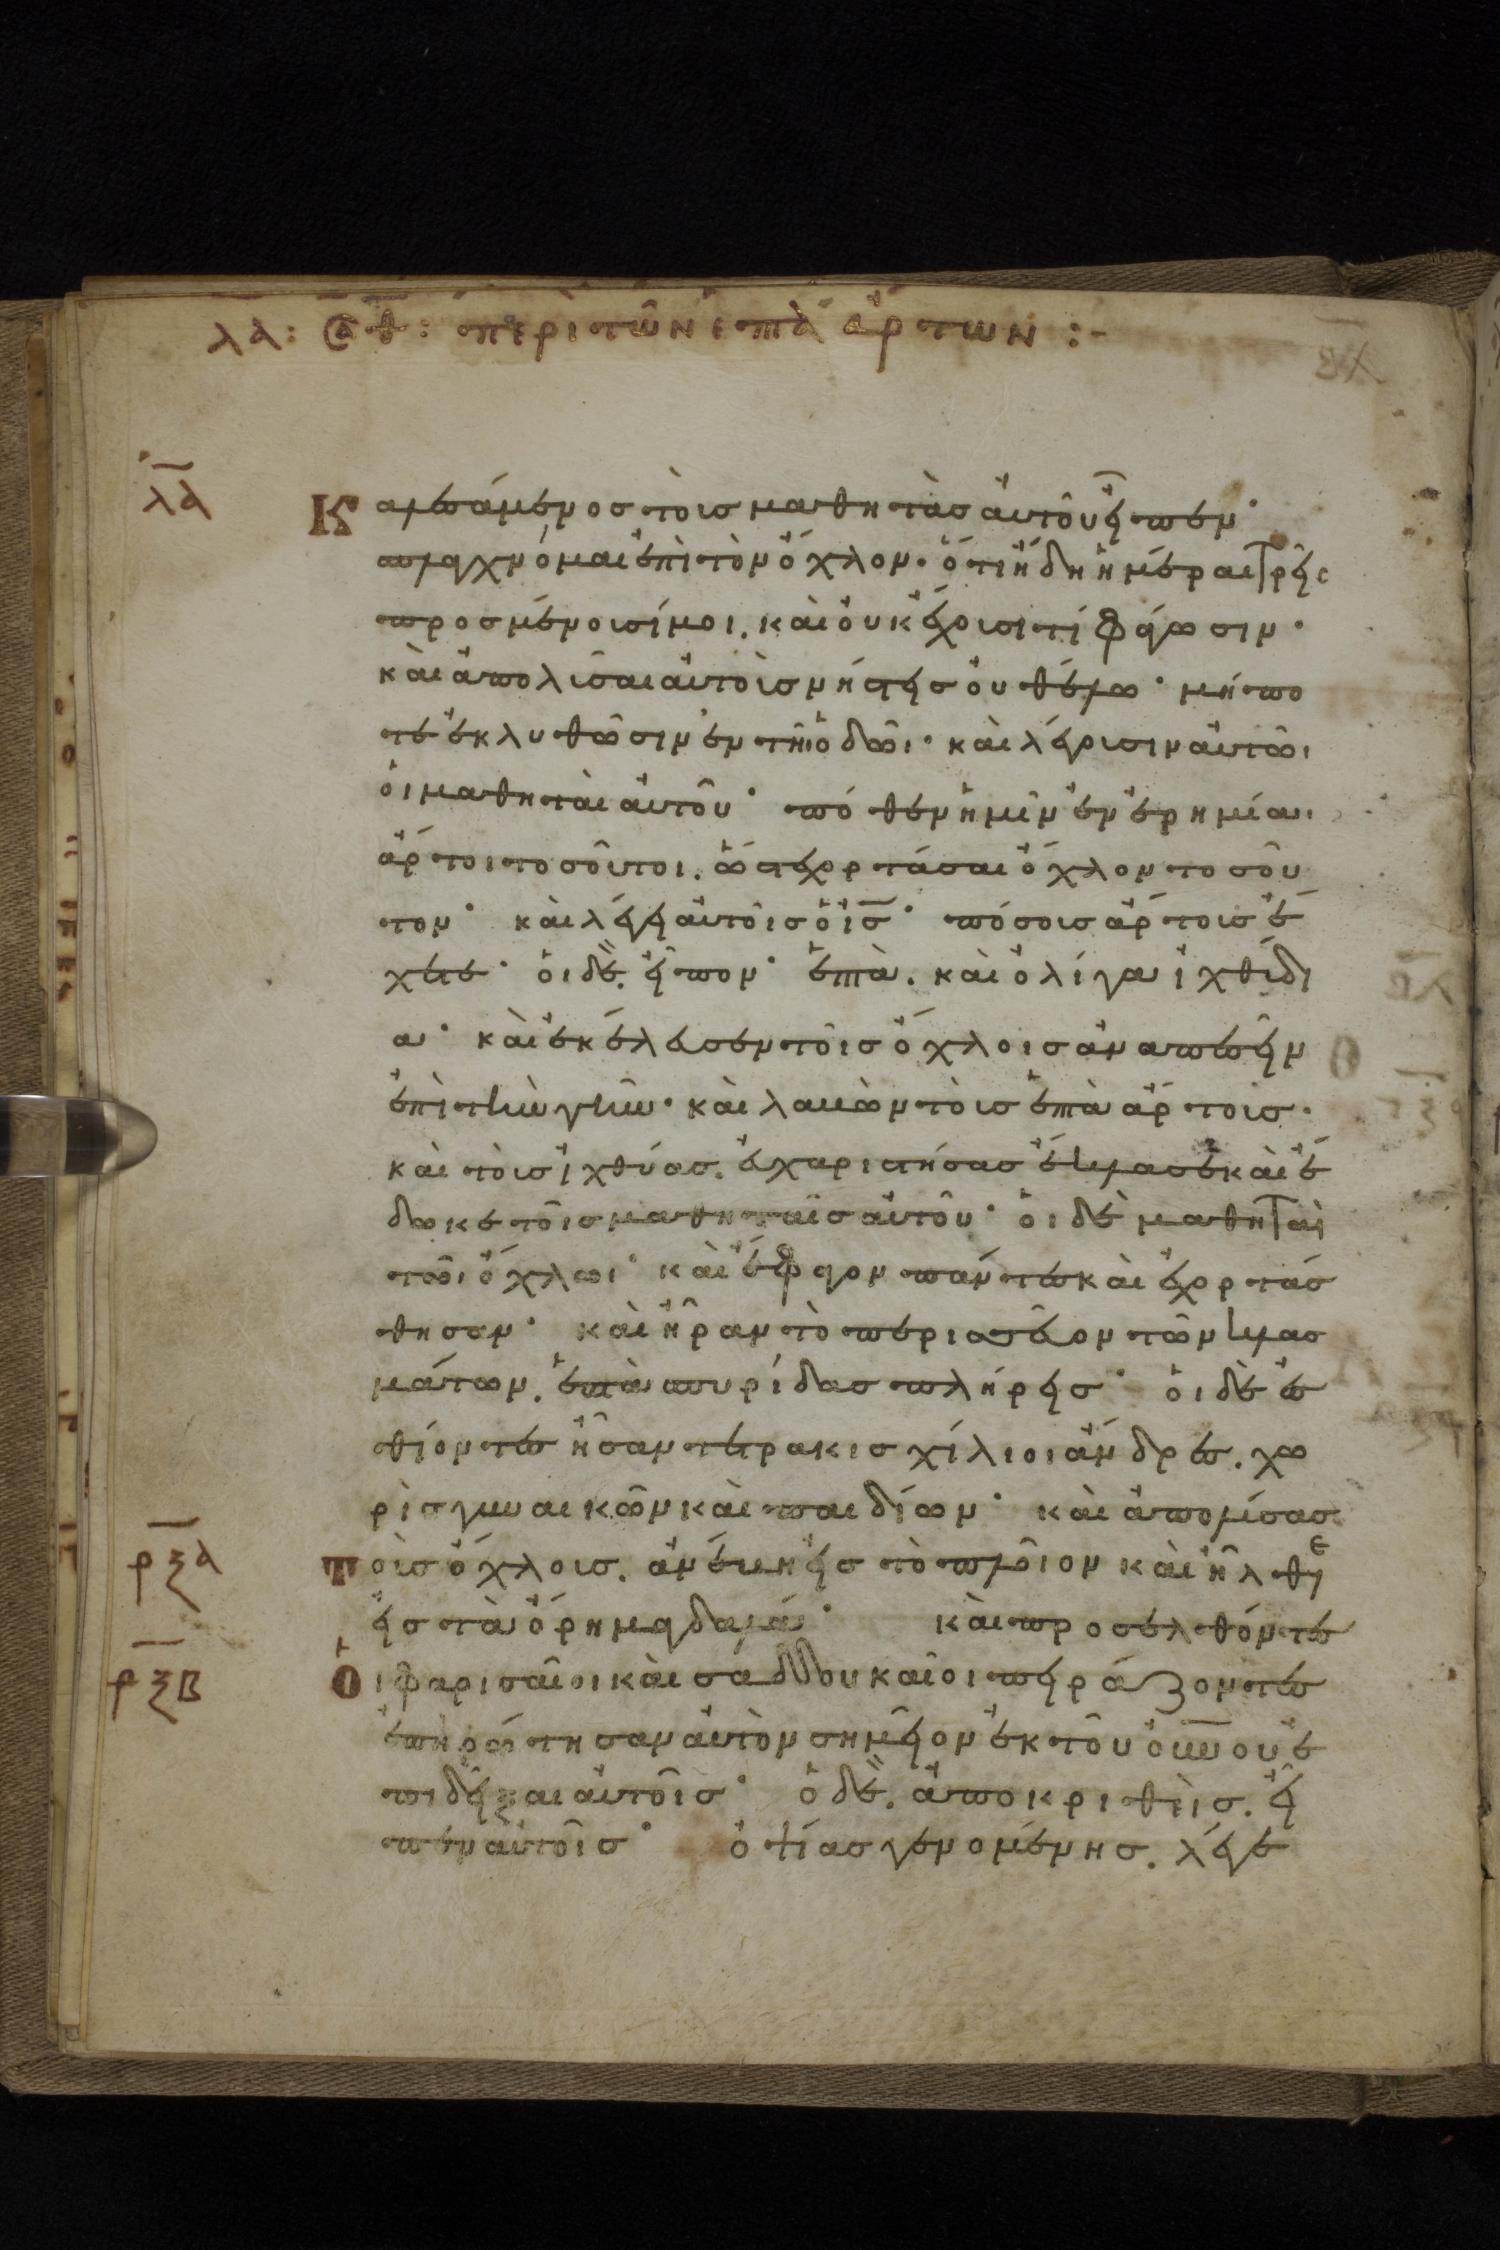 λα: Θθ: περι τῶν επτὰ ἄρτων :-
λα Καλεσάμενος τοὺς μαθητὰς αὐτοῦ εἶπεν·
σπλαγχνόμαι ἐπὶ τὸν ὄχλον· ὅτι ἤδη ἡμέραι τρεῖς
προσμένουσί μοι. καὶ οὐκ ἔχουσι τί φάγωσιν·
καὶ ἀπολῦσαι αὐτοὺς νήστεις οὐ θέλω· μήπο
τε ἐκλυθῶσιν ἐν τῆι ὁδῶι· καὶ λέγουσιν αὐτῶι
οἱ μαθηταὶ αὐτοῦ· πόθεν ἡμῖν ἐν ἐρημίαι
ἄρτοι τοσοῦτοι. ὥστε χορτάσαι ὄχλον τοσοῦ
τον· καὶ λέγει αὐτοῖς ὁ ἰς· πόσους ἄρτους ἔ
χετε· οἱ δὲ. εἶπον· ἑπτὰ. καὶ ὀλίγα ἰχθύδι
α· καὶ ἐκέλευσεν τοῖς ὄχλοις ἀναπεσεῖν
ἐπὶ τὴν γῆν· καὶ λαβὼν τοὺς ἑπτὰ ἄρτους·
καὶ τοὺς ἰχθύας. εὐχαριστήσας ἔκλασε καὶ ἔ
δωκε τοῖς μαθηταῖς αὐτοῦ· οἱ δὲ μαθηταὶ
τῶι ὄχλωι· καὶ ἔφαγον πάντες καὶ ἐχορτάσ
θησαν· καὶ ἦραν τὸ περισσεῦον τῶν κλασ
μάτων. ἑπτὰ σπυρίδας πλήρεις· οἱ δὲ ἐσ
θίοντες ἦσαν τετρακισχίλιοι ἄνδρες. χω
ρὶς γυναικῶν καὶ παιδίων· καὶ ἀπολύσας
ρξα τοὺς ὄχλους. ἀνέβη εἰς τὸ πλοῖον καὶ ἦλθε
εἰς τὰ ὅρη μαγδαλά· καὶ προσελθόντες
ρξβ Οἱ φαρισαῖοι καὶ σαδδουκαῖοι πειράζοντες
ἐπηρώτησαν αὐτὸν σημεῖον ἐκ τοῦ οὐνου ἐ
πιδεῖξαι αὐτοῖς· ὁ δὲ. ἀποκριθεὶς. εἶ
πεν αὐτοῖς· ὀψίας γενομένης. λέγε